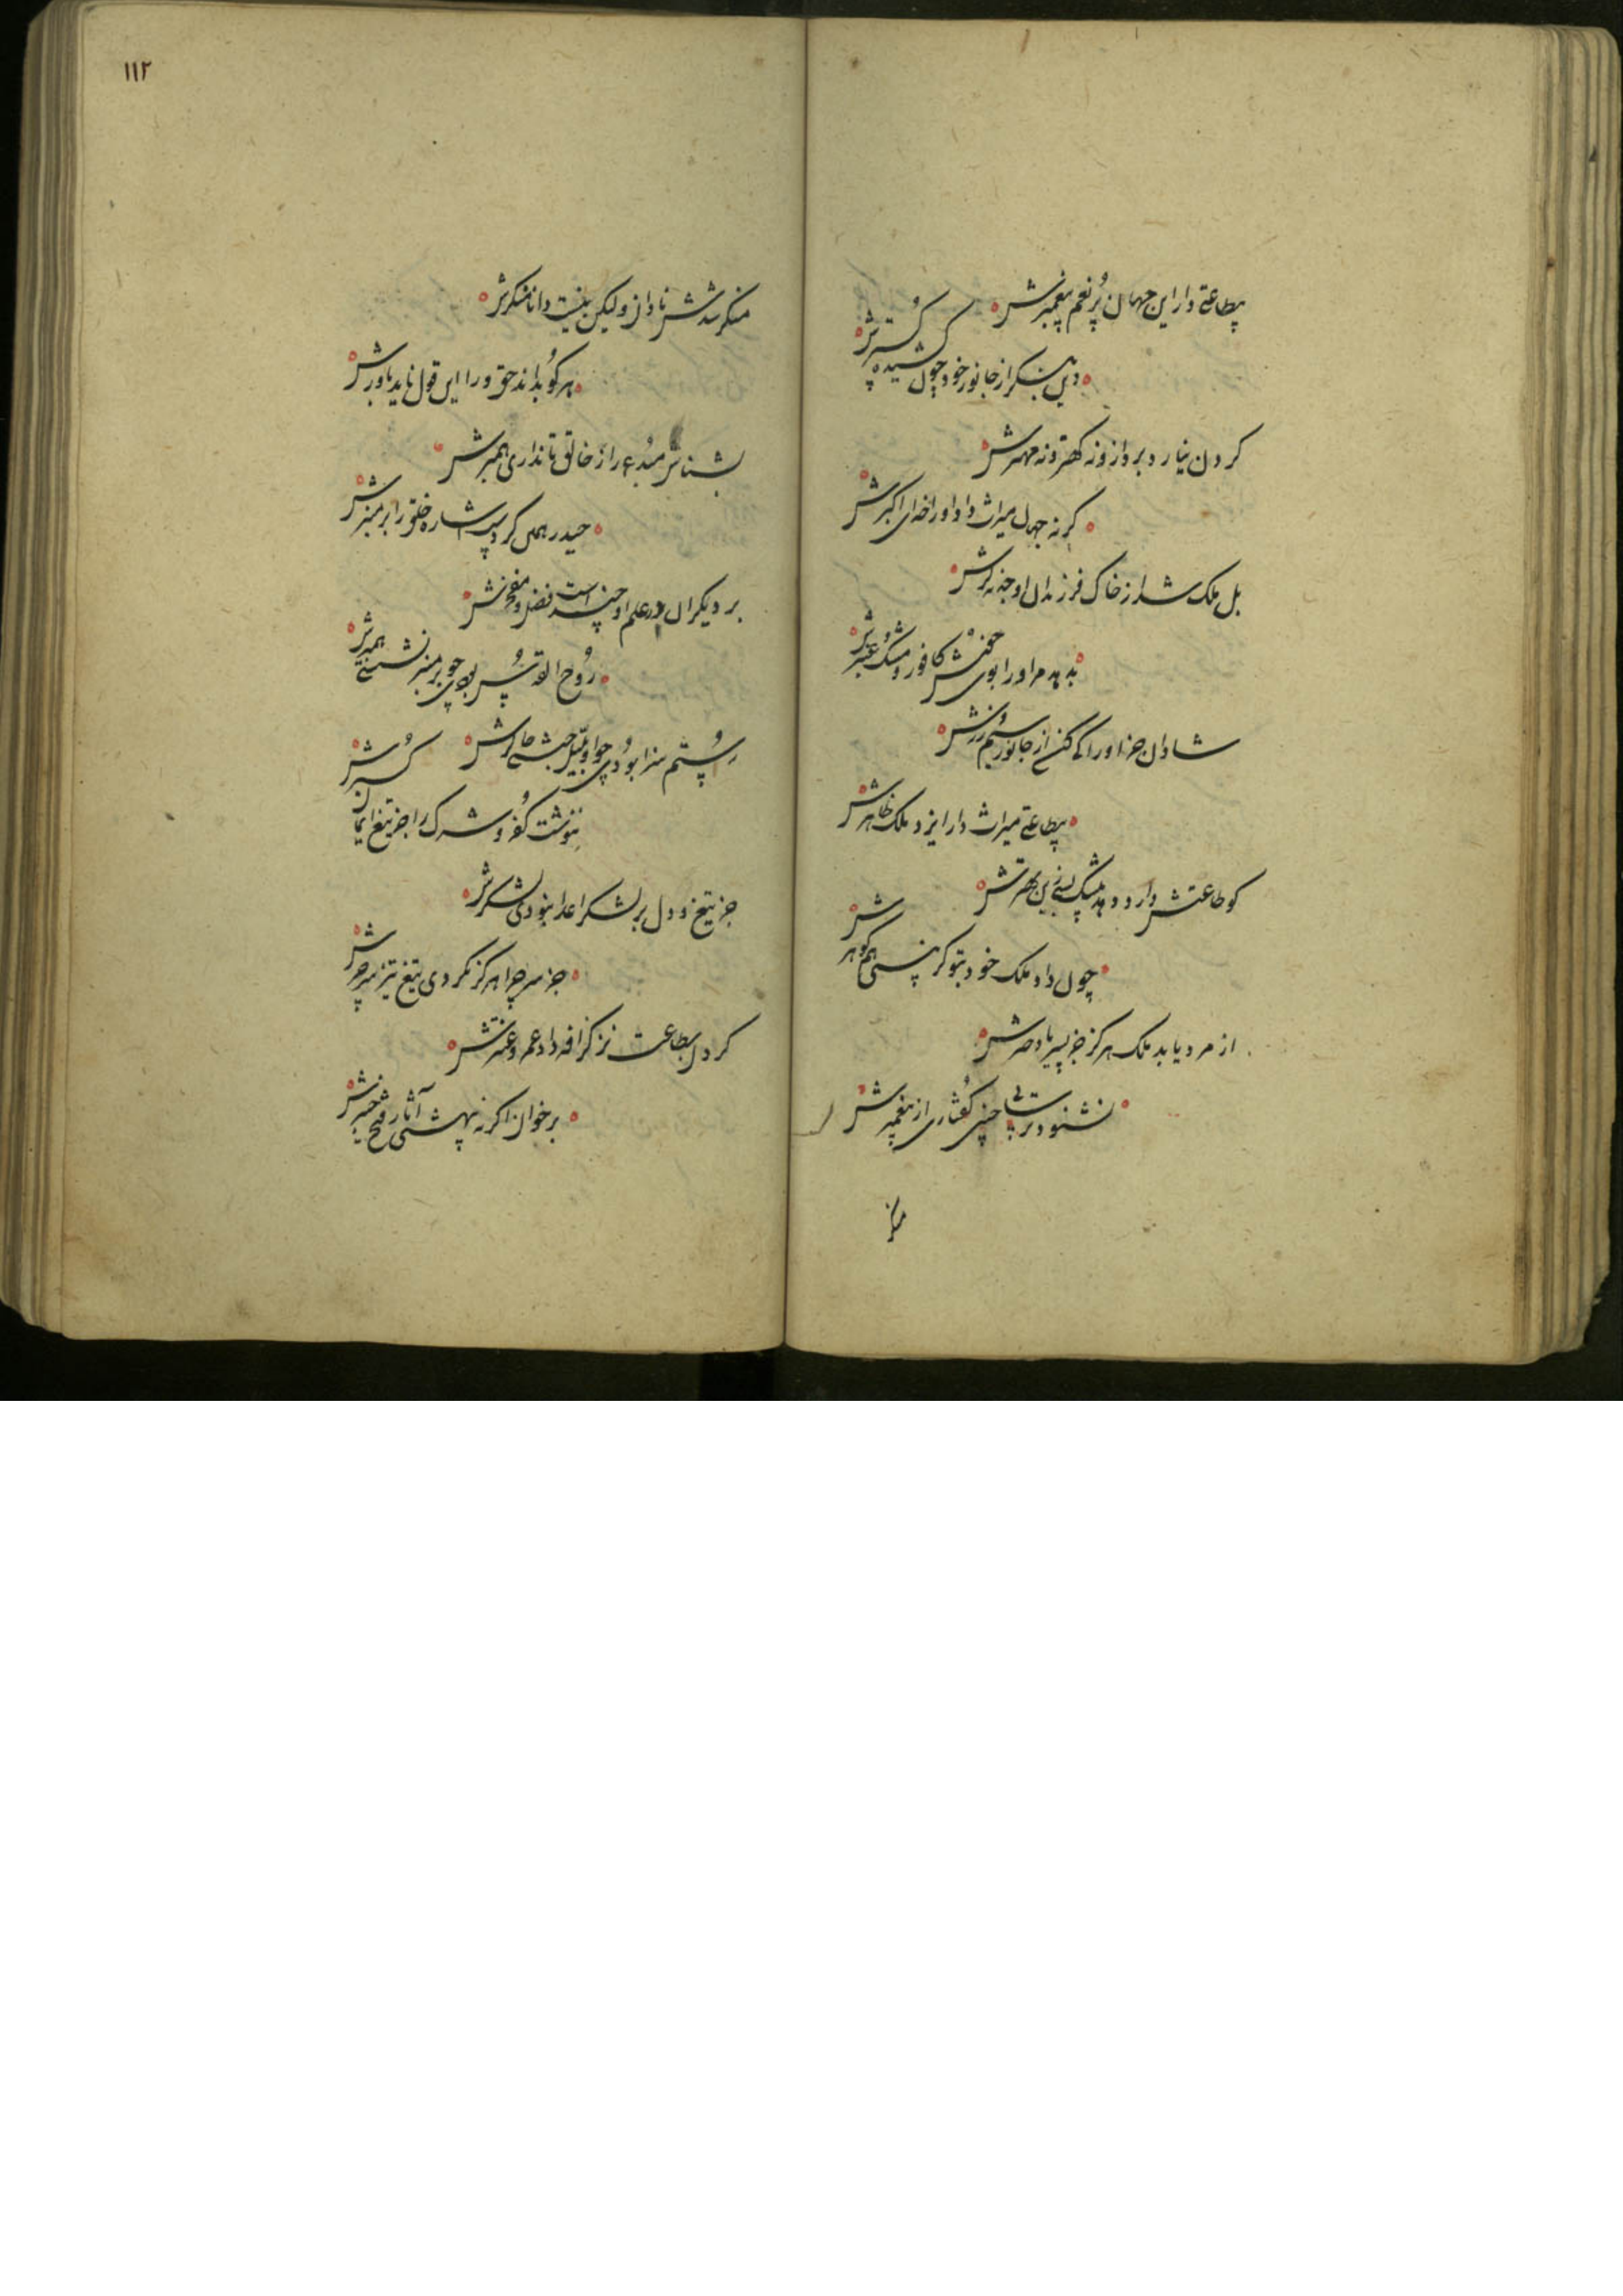 بطاعتی دار این جهان پُر نعم پیغمبرش
وین بنگر از جانور خود چون کشیده کُسترش
کردن نیارد بر دازو نه کهتر و نه مهترش
کر نه جهان میراث داد او را خدای اکبرش
بل ملک شد از خاک فرزندان او جز نه کرش
بدهد مر او را بوی خوش کافور و مشک و عنبرش
شادان جز او را کی کند از جانور سیم و زرش
بطاعتی میراث دار ایزد ملک ظاهرش
کو طاعتش دارد دهد بیشک
چون داد ملک خود بتو کر نیستی هم کوهرش
از مرد یابد ملک هرکز جز پسر یا دخترش
نشنود ترسا چنین کفتاری از پیغمبرش
منکر
١١٢
منکر شدش نادان ولیکن نیست دانا منکرش
هر کو بداند حق ورا این قول ناید باورش
بشناس مبدع را ز خالق تا نداری همبرش
حیدر همی کرد اشارة خلق را بر منبرش
بر دیکران در علم او چند است فضل و مفخرش
رُوح القدس بودی چو بر منبر نشستی همبرش
رستم سزا بودی چو او چاکرش
ننوشت کفر و شرک را جز تیغ ایمان کسترش
جز تیغ و دل بر لشکر اعدا نبودی لشکرش
جز سر چرا هرکز نکردی تیغ تیز
کردن بطاعت نز کزافه داد عمرو و عنترش
برخوان اکر نشنیدستی آثار فتح خیبرش